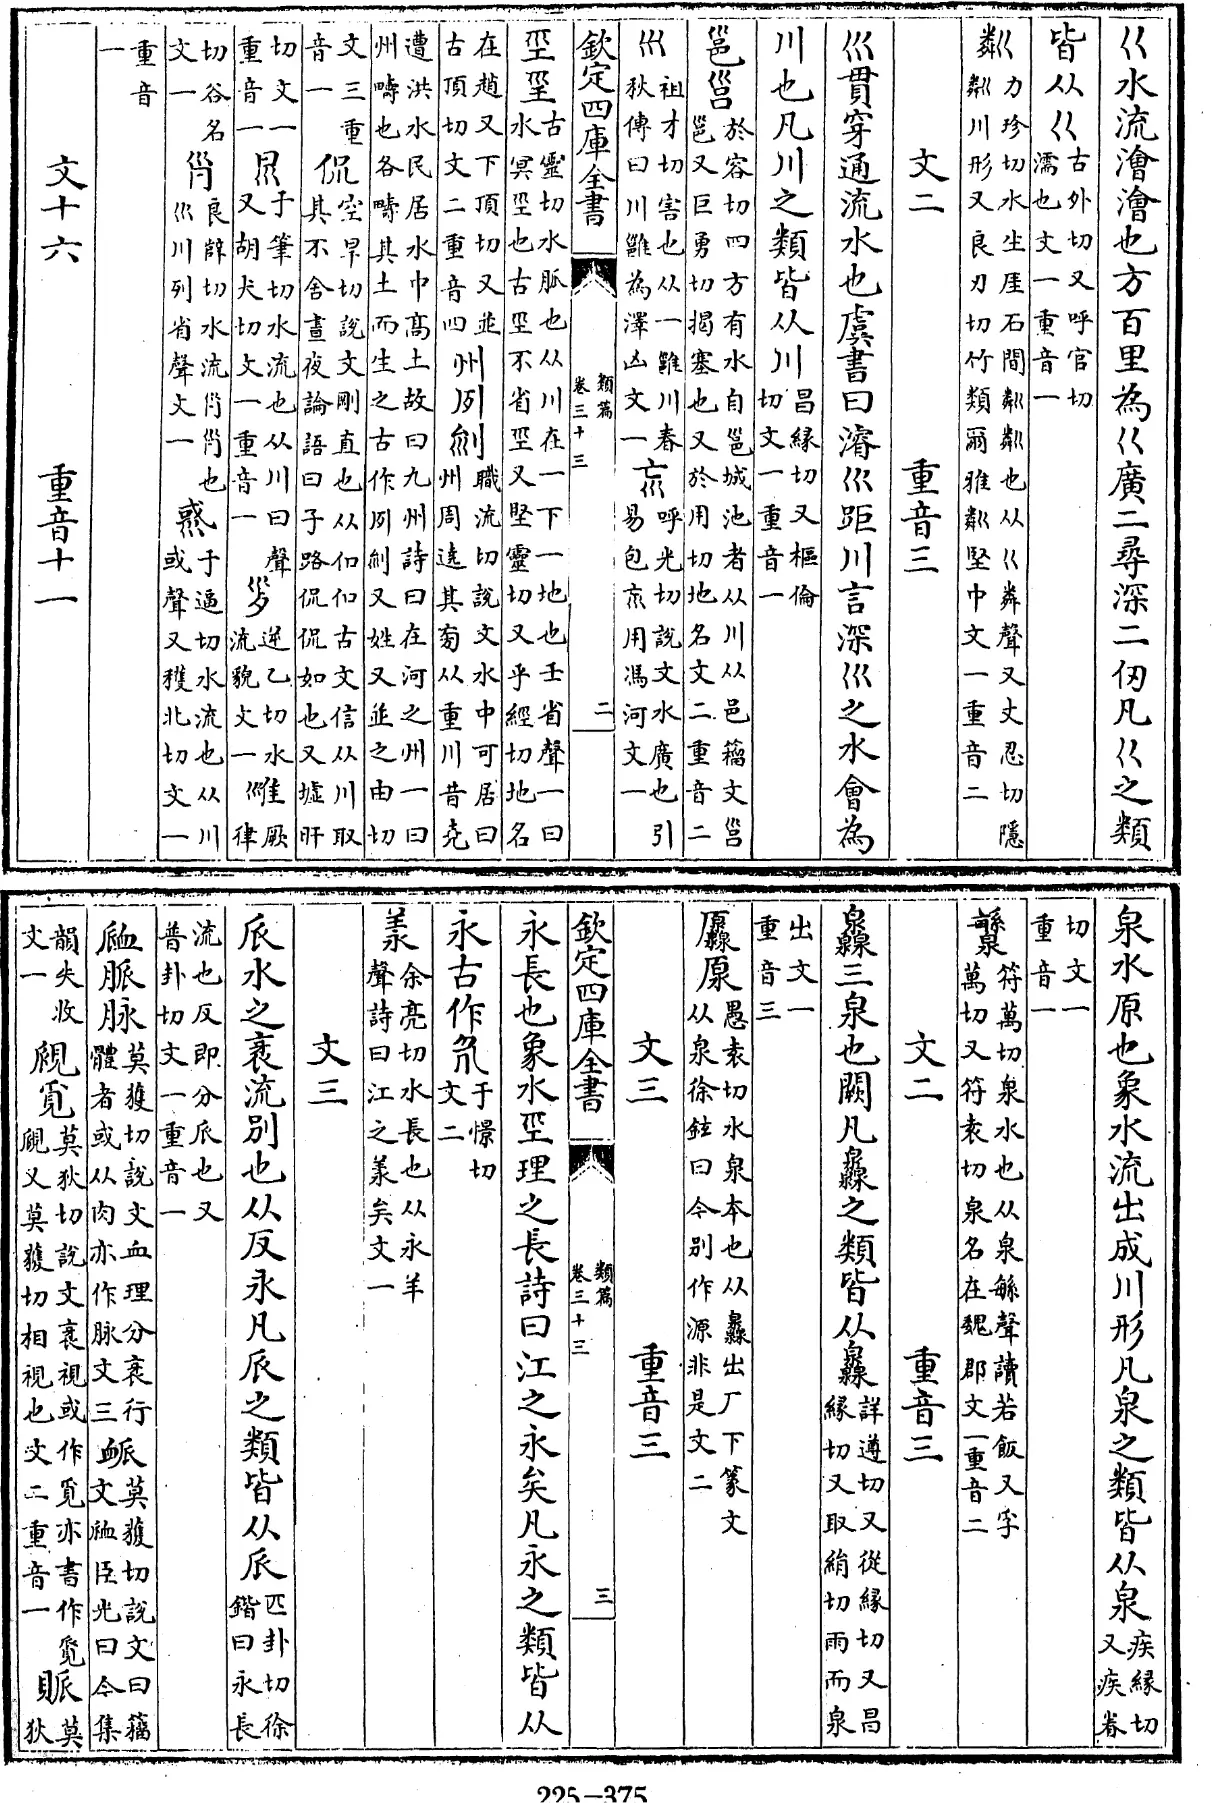 巜水流澮澮也方百里為巜廣二尋深二仞凡巜之類
皆从巜古外切又呼官切濡也文一重音一
粼力珍切水生厓石間粼粼也从巜粦聲又丈忍切隱粼川形又良刃切竹類爾雅粼堅中文一重音二
文二 重音三
巛貫穿通流水也虞書曰濬巛距川言深巛之水會為
川也凡川之類皆从川昌縁切又樞倫切文一重音一
邕於容切四方有水自邕城池者从川从邑籀文邕又巨勇切揭塞也又於用切地名文二重音二
𡿧祖才切害也从一雝川春秋傳曰川雝為澤凶文一巟呼光切說文水廣也引易包巟用馮河文一
欽定四庫全書 類篇 卷三十三 二
巠古靈切水脈也从川在一下一地也壬省聲一曰水冥巠也古巠不省巠又堅靈切又乎經切地名
在趙又下頂切又並古頂切文二重音四州職流切說文水中可居曰州周遶其旁从重川昔堯
遭洪水民居水中髙土故曰九州詩曰在河之州一曰州疇也各疇其土而生之古作又姓又並之由切
文三重音一侃空旱切說文剛直也从㐰㐰古文信从川取其不舍晝夜論語曰子路侃侃如也又墟旰
切文一重音一于筆切水流也从川曰聲又胡犬切文一重音一逆乙切水流貌文一厥律
切谷名文一良辥切水流也巛川列省聲文一于逼切水流也从川或聲又穫北切文一
重音一
文十六 重音十一
泉水原也象水流出成川形凡泉之類皆从泉疾縁切又疾眷
切文一重音一
䋣符萬切泉水也从泉緐聲讀若飯又孚萬切又符袁切泉名在魏郡文一重音二
文二 重音三
灥三泉也闕凡灥之類皆从灥詳遵切又從縁切又昌縁切又取絹切雨而泉
出文一重音三
厵原愚袁切水泉本也从灥出厂下篆文从泉徐鉉曰今別作源非是文二
文三 重音三
欽定四庫全書 類篇 卷三十三 三
永長也象水巠理之長詩曰江之永矣凡永之類皆从
永古作于憬切文二
羕余亮切水長也从永羊聲詩曰江之羕矣文一
文三
𠂢水之衺流別也从反永凡𠂢之類皆从𠂢匹卦切徐鍇曰永長
流也反即分𠂢也又普卦切文一重音一
衇脈脉莫獲切說文血理分衺行體者或从肉亦作脉文三莫獲切說文曰籀文衇臣光曰今集
韻失收文一覛覓莫狄切說文衺視或作覓亦書作覔覛又莫獲切相視也文二重音一莫狄
225-375